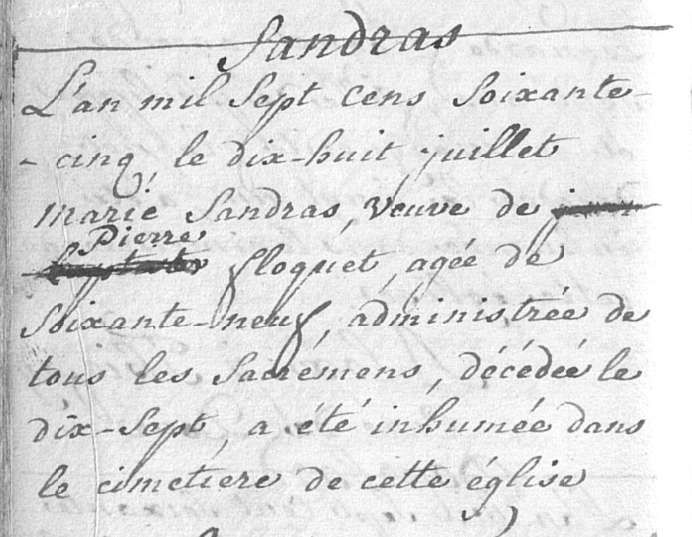 Sandras
L'an mil Sept Cens Soixante-
- cinq, le dix-huit juillet
marie Sandras, veuve de
Pierre
floquet, agée de
Soixante-neuf, administrée de
tous les Sacrémens, décédée le
dix-Sept, a été inhumée dans
le cimetiere de cette église